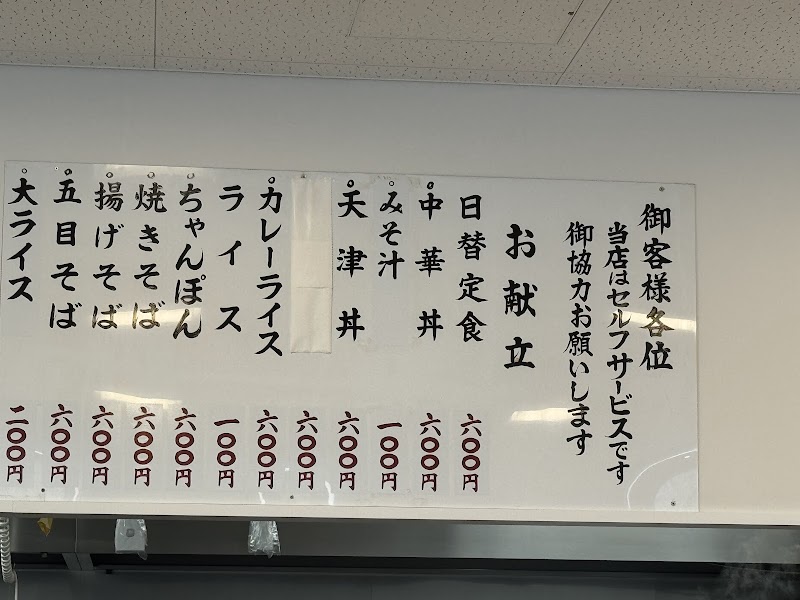 御客様各位
当店はセルフサービスです
御協力お願いします
お献立
日替定食 六〇〇円
中華丼 六〇〇円
みそ汁 一〇〇円
天津丼 六〇〇円
六〇〇円
カレーライス 六〇〇円
ライス 一〇〇円
ちゃんぽん 六〇〇円
焼きそば 六〇〇円
揚げそば 六〇〇円
五目そば 六〇〇円
大ライス 二〇〇円